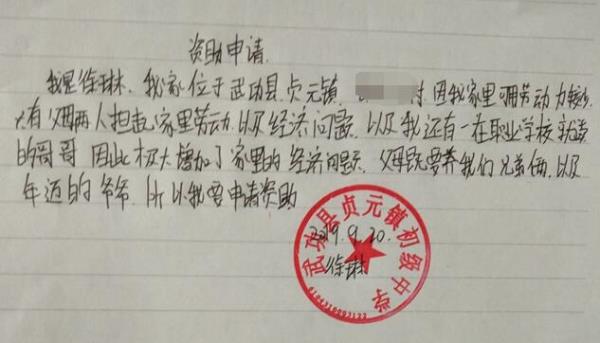 资助申请
我是徐琳,我家位于武功县贞元镇 村.因我家里可用劳动力较少
只有父母两人担起家里劳动.以及经济问题.以及我还有一在职业学校就读
的哥哥 因此极大增加了家里的经济问题.父母既要养我们兄弟俩.以及
年迈的爷爷.所以我要申请资助
2019.9.20.
徐琳
武功县贞元镇初级中学